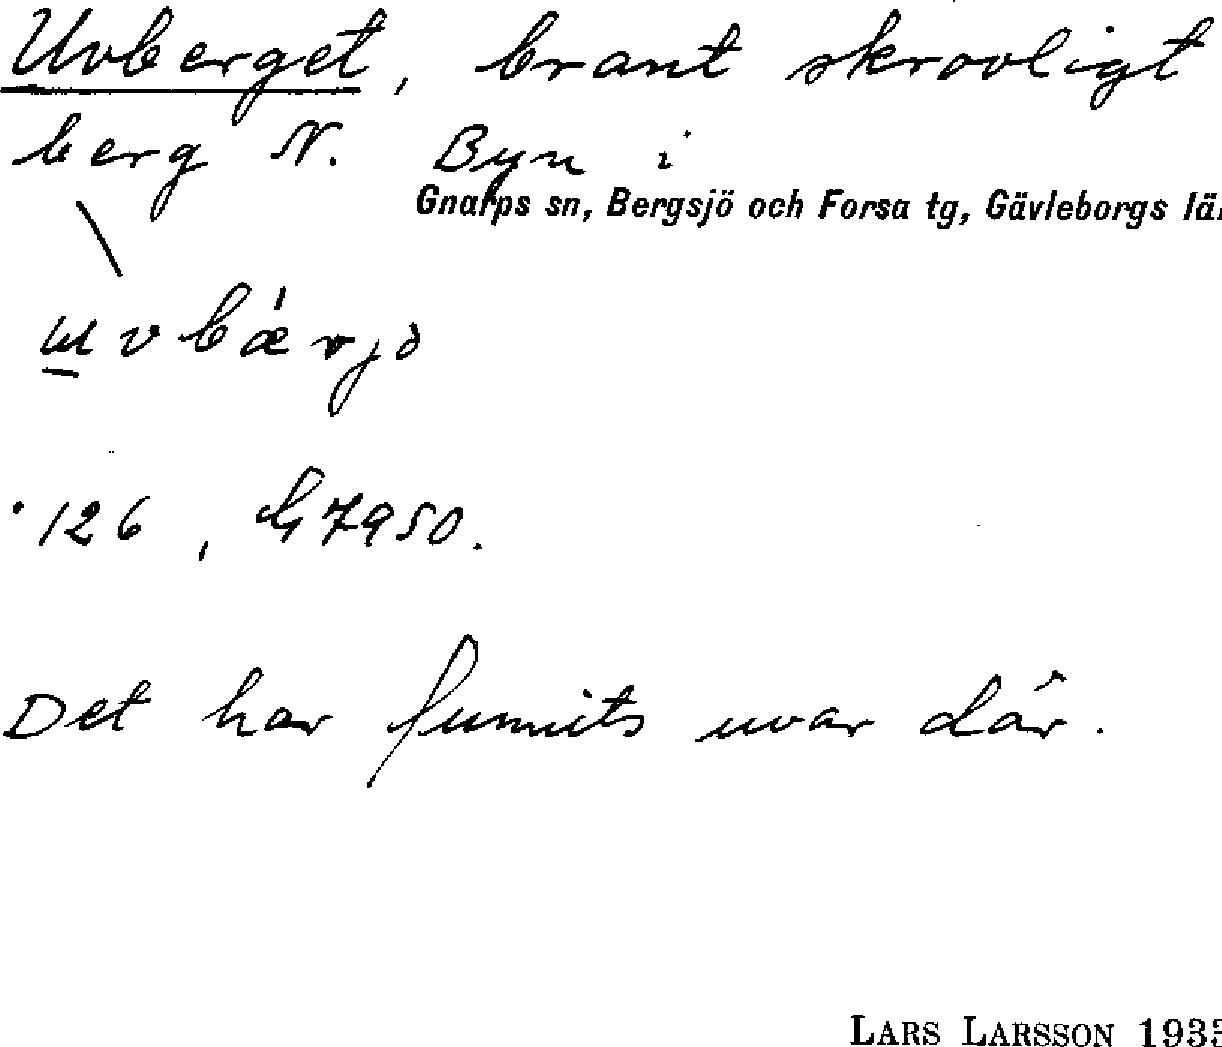 Uvberget, brant skrovligt
berg N. Byn i
Gnarps sn, Bergsjö och Forsa tg, Gävleborgs lä
·126, 
Det har funnits uvar där.
LARS LARSSON 193